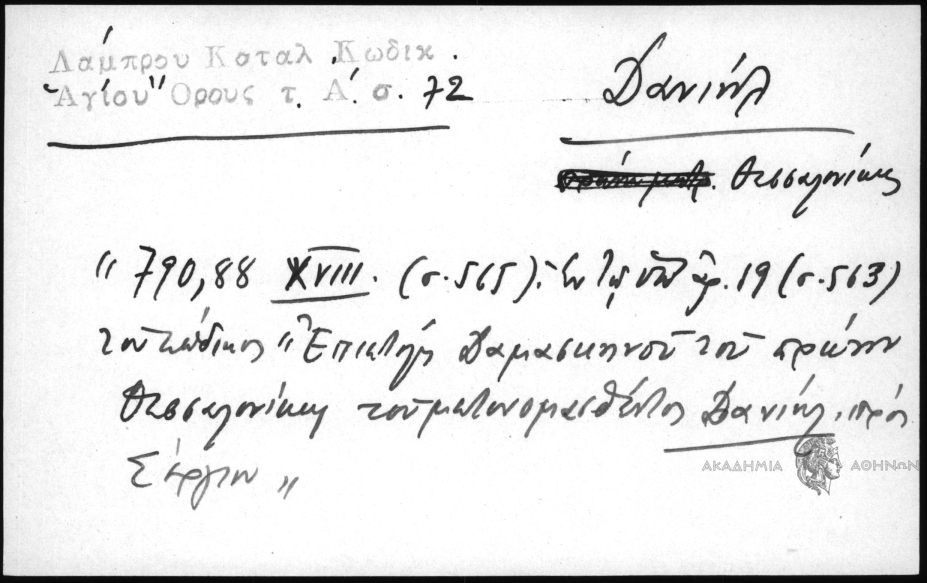 Λάμπρου Καταλ. Κωδικ.
Ἁγίου Ὄρους τ. Α΄. σ. 72
Δανιὴλ
Θεσσαλονίκης
"790,88 XVIII. (σ. 565). Ἐν τῷ ὑπ' ἀρ. 19 (σ. 563)
τοῦ κώδικος "Ἐπιστολὴ Δαμασκηνοῦ τοῦ πρώην
Θεσσαλονίκης τοῦ μετονομασθέντος Δανιὴλ πρὸς
Σέργιον"
ΑΚΑΔΗΜΙΑ ΑΘΗΝΩΝ